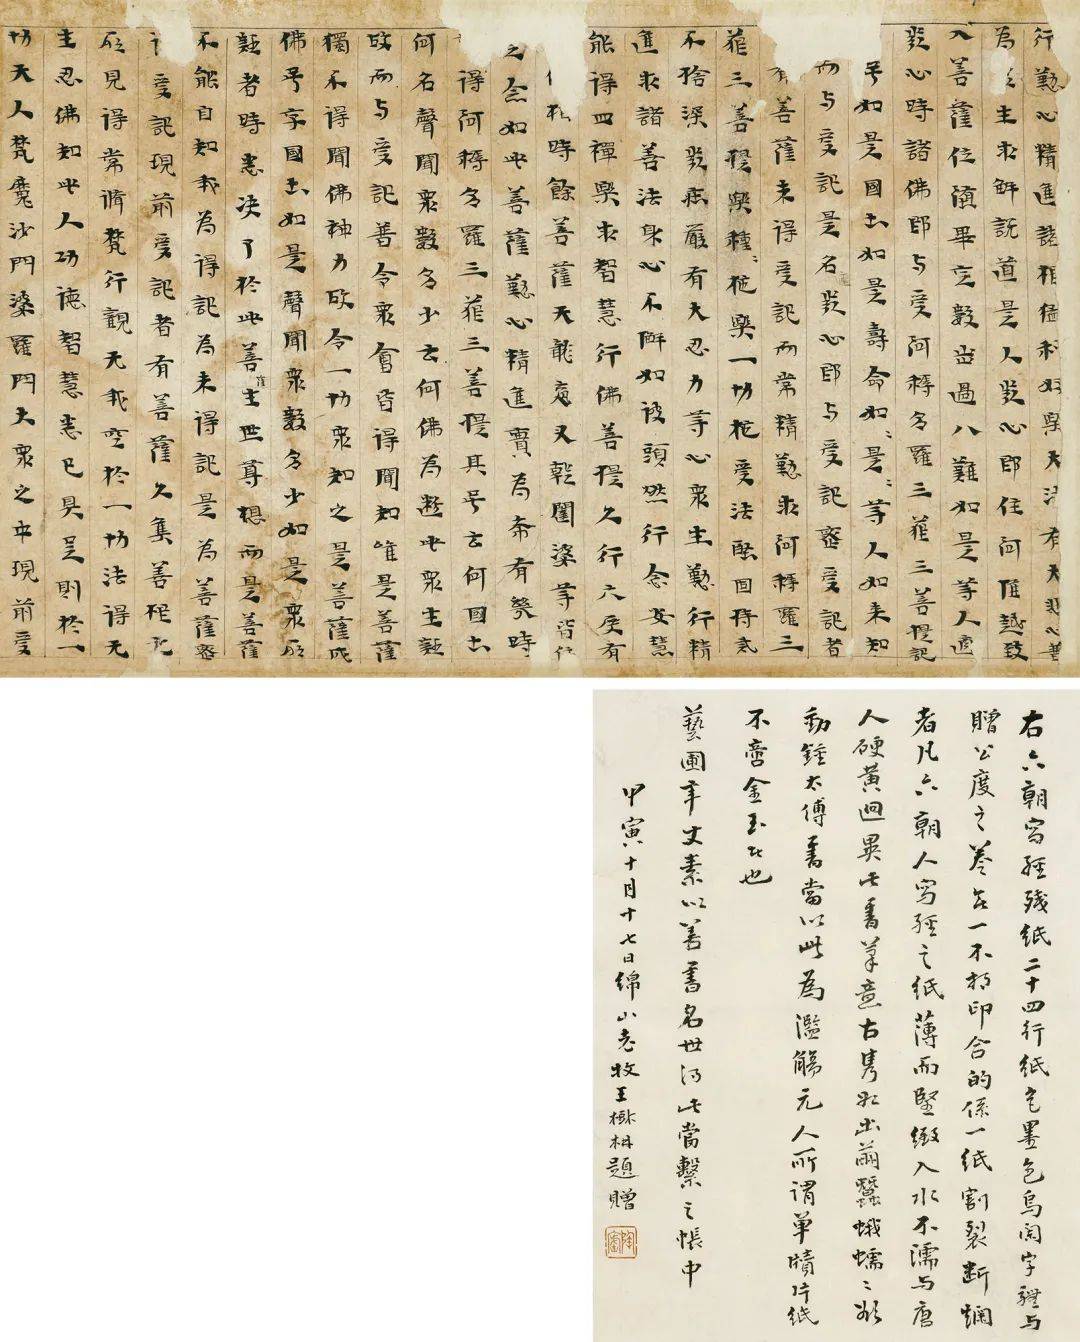 行懃心精進諸根猛利好樂大法有大悲心普
為眾生求解說道是人發心即住阿惟越致
入菩薩位墮畢定數出過八難如是等人適
發心時諸佛即与受阿耨多羅三藐三菩提記
号如是國土如是壽命如〻是〻等人如来知
而与受記是名發心即与受記密受記者
有菩薩未得受記而常精懃求阿耨羅三
藐三菩提樂種〻施樂一切施受法堅固持戒
不捨深發莊嚴有大忍力等心衆生懃行精
進求諸善法身心不懈如被頭燃行念安慧
能得四禪樂求智慧行佛菩提久行六度有
相時餘菩薩天龍夜叉乾闥婆等皆作
之念如此菩薩懃心精進實為希有幾時
得阿耨多羅三藐三菩提其号云何國土
何名聲聞衆數多少云何佛為斷此衆生疑
故而与受記普令衆會皆得聞知唯是菩薩
獨不得聞佛神力故令一切衆知之是菩薩成
佛号字國土如是聲聞衆數多少如是衆所
疑者時悉决了於此菩薩生世尊想而是菩薩
不能自知我為得記為未得記是為菩薩密
受記現前受記者有菩薩久集善根无
所見得常修梵行觀无我空於一切法得无
生忍佛知此人功德智慧悉已具足則於一
切天人梵魔沙門婆羅門大衆之中現前受
右六朝寫經殘紙二十四行紙色墨色烏闌字體与
贈公度之卷無一不相印合的係一紙割裂斷爛
者凡六朝人寫經之紙薄而堅緻入水不濡与唐
人硬黃迥異此書筆意古雋如出繭蠶蛾蠕〻欲
動鍾太傅書當以此為濫觴元人所謂單牘片紙
不啻金玉者也
藝圃年丈素以善書名世得此當繫之帳中
甲寅十月十七日綿山老牧王樹枏題贈
陶廬